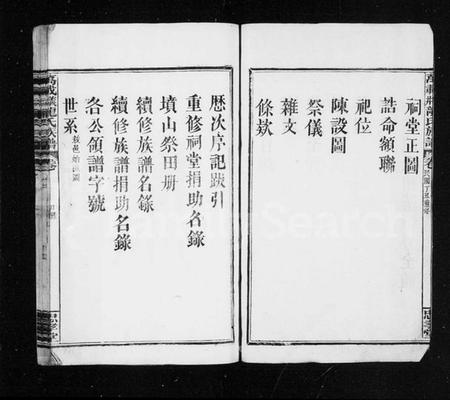 祠堂正圖
誥命額聯
祀位
陳設圖
祭儀
雜文
條欵
歷次序記跋引
重修祠堂捐助名錄
墳山祭田册
續修族譜名錄
續修族譜捐助名錄
各公領譜字號
世系
FamilySearch